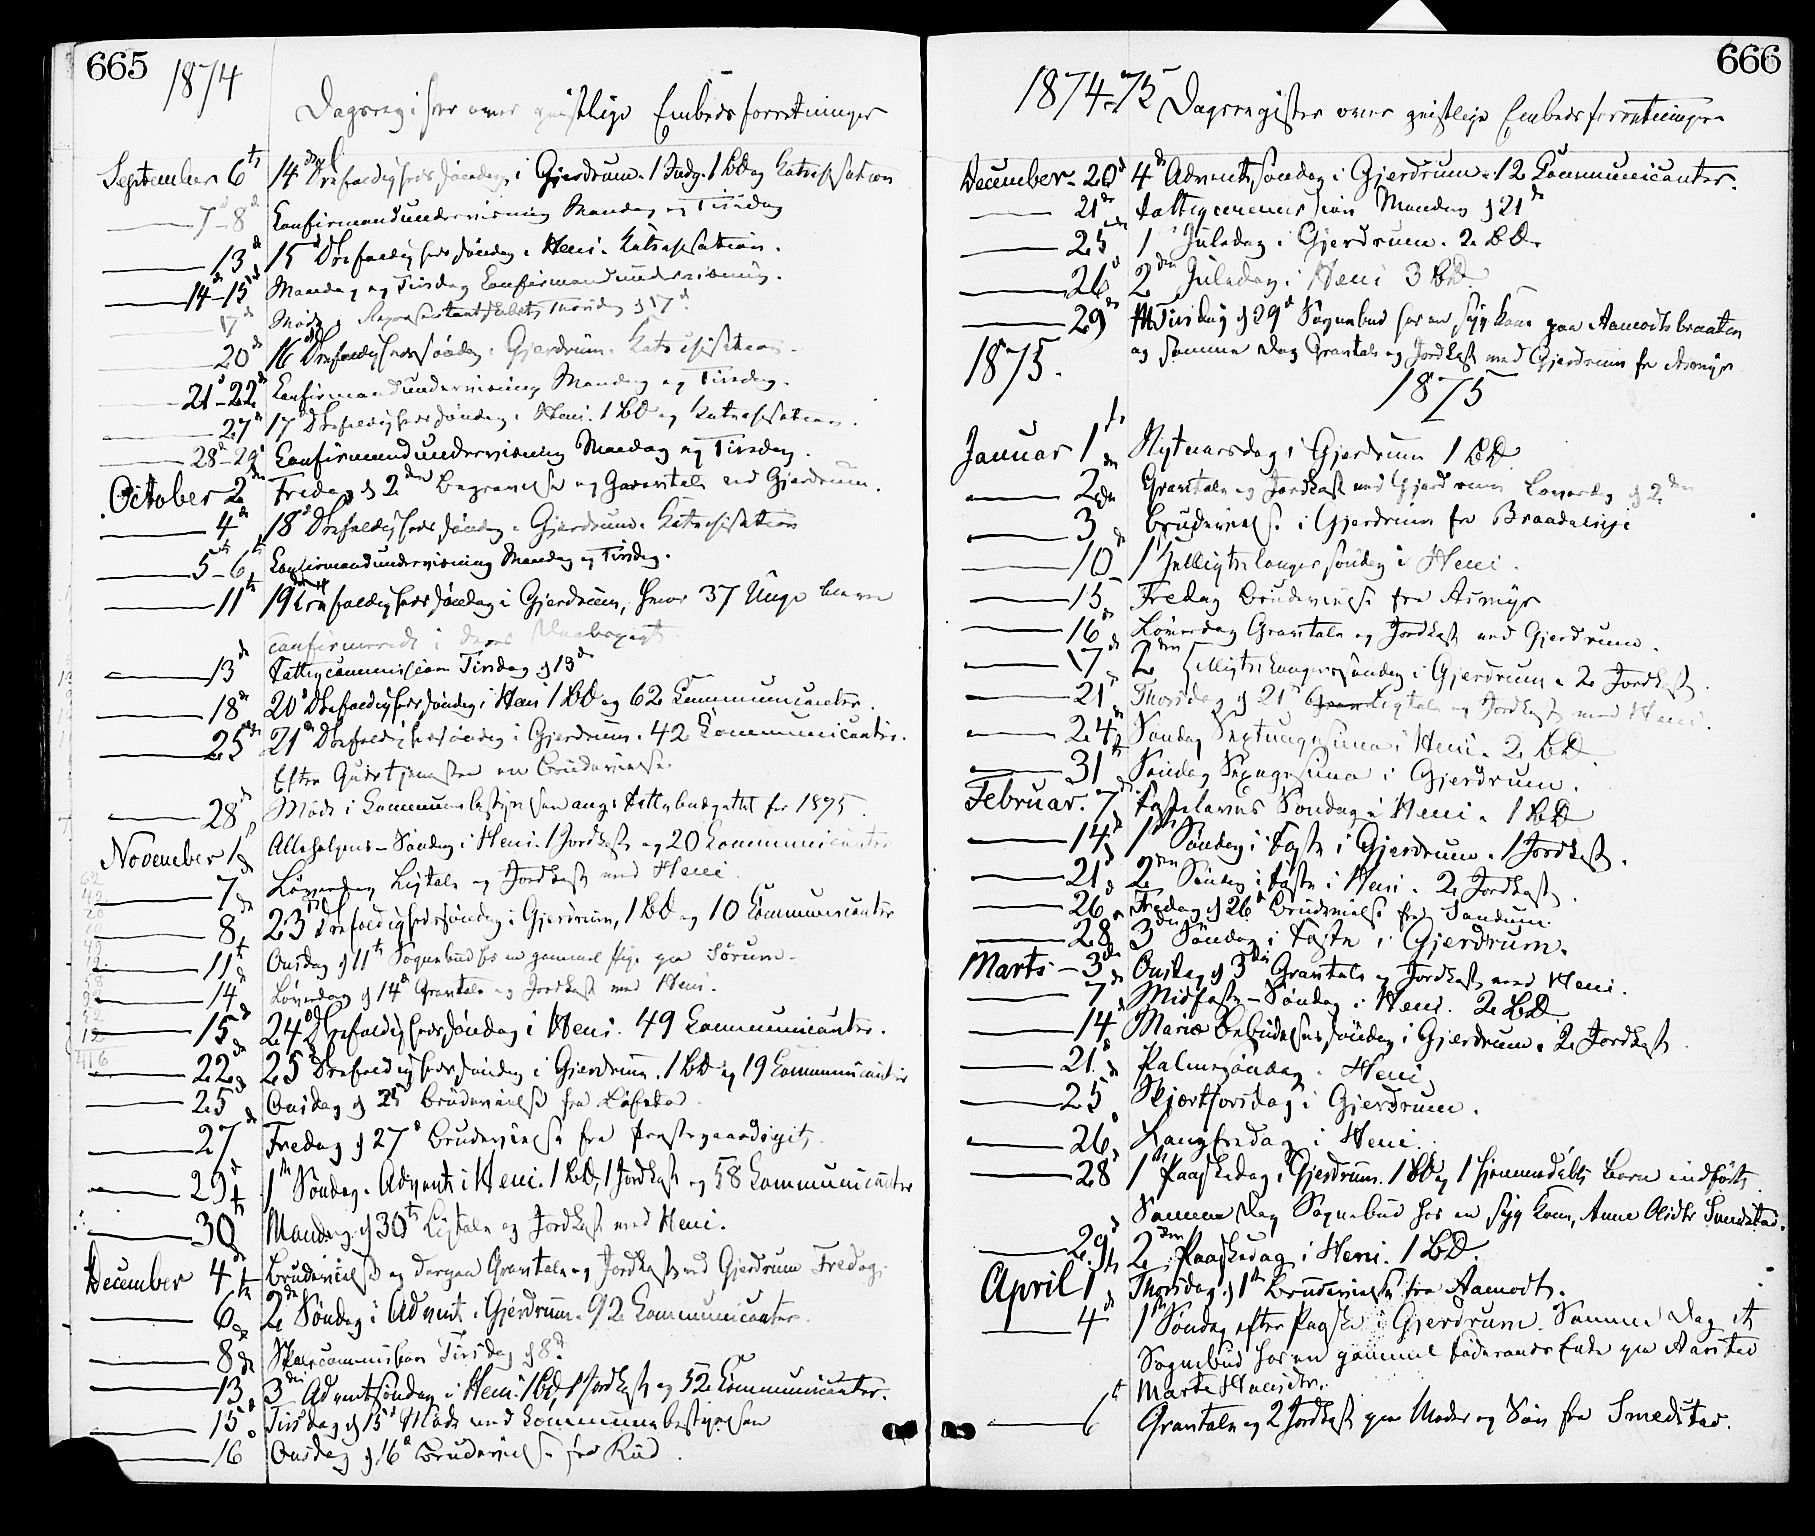 665
1874
Dagsregister over geistlige Embedsforretninger
September 6te 14de Trefoldighedssøndag i Gjerdrum. 1 Indg. 1 BD og Katechisation
7-8de Confirmandundervisning Mandag og Tirsdag
13de 15de Trefoldighedssøndag i Heni. Katechisation.
14-15de Mandag og Tirsdag Confirmandundervisning.
17de Møde i Repræsentantskabet, Thorsdag d 17de
20de 16de Trefoldighedssøndag i Gjerdrum. Katechisation.
21-22de Confirmandundervisning Mandag og Tirsdag.
27de 17de Trefoldighedssøndag i Heni. 1 BD og Katechisation.
28de-29de Confirmandundervisning Mandag og Tirsdag.
October 2den Fredag d 2den Begravelse og Gravtale ved Gjerdrum.
4de 18de Trefoldighedssøndag i Gjerdrum. Katechisation
5te-6te Confirmandundervisning Mandag og Tirsdag.
11te 19de Trefoldighedssøndag i Gjerdrum, hvor 37 Unge bleve
confirmerede i deres Daabspagt
13de Fattigcommission Tirsdag d 13de
18de 20de Trefoldighedssøndag i Heni 1 BD og 62 Communicanter.
25de 21de Trefoldighedssøndag i Gjerdrum. 42 Communicanter.
Efter Gudstjenesten en Brudevielse
28de Møde i Kommunebestyrelsen ang. Fattigbudgettet for 1875.
November 1ste Allehelgens-Søndag i Heni. 1 Jordkast og 20 Communicanter
7de Løverdag Ligtale og Jordkast ved Heni.
8de 23de Trefoldighedssøndag i Gjerdrum, 1 BD og 10 Communicanter
11te Onsdag d 11te Sognebud hos en gammel Pige paa Sørum.
14de Løverdag d 14de Gravtale og Jordkast ved Heni.
15de 24de Trefoldighedssøndag i Heni. 49 Communicanter.
22de 25de Trefoldighedssøndag i Gjerdrum. 1 BD og 19 Communicanter
25de Onsdag d 25de Brudevielse fra
27de Fredag d 27de Brudevielse fra Præstegaardseiet,
29de 1ste Søndag i Advent i Heni. 1 BD, 1 Jordkast og 58 Communicanter
30te Mandag d 30te Ligtale og Jordkast ved Heni.
December 4de Brudevielse og derpaa Gravtale og Jordkast ved Gjerdrum Fredag.
6te 2den Søndag i Advent i Gjerdrum. 92 Communicanter.
8de Skolecommission Tirsdag d 8de
13de 3die Adventsøndag i Heni. 1 BD, 1 Jordkast og 52 Communicanter.
15de Tirsdag d 15de Møde ved Kommunebestyrelsen
16de Onsdag d 16de Brudevielse fra Rud.
666
1874-75 Dagsregister over geistlige Embedsforretninger
December 20de 4de Adventssøndag i Gjerdrum. 12 Communicanter.
21de Fattigcommission Mandag d 21de
25de 1ste Juledag i Gjerdrum. 2 BD.
26de 2den Juledag i Heni 3 BD.
29de Tirsdag d 29de Sognebud hos en syg Kone paa Aamodtsbraaten
og samme Dag Gravtale og Jordkast ved Gjerdrum fra Asmyr
1875. 1875
Januar 1ste Nytaarsdag i Gjerdrum 1 BD
2den Gravtale og Jordkast ved Gjerdrum Løverdag d 2den
3die Brudevielse i Gjerdrum fra
10de 1ste Helligtrekongerssøndag i Heni.
15de Fredag Brudevielse fra Asmyr
16de Løverdag Gravtale og Jordkast ved Gjerdrum.
17de 2den Helligtrekongerssøndag i Gjerdrum. 2 Jordkast.
21de Thorsdag d 21de Ligtale og Jordkast ved Heni.
24de Søndag Septuagesima i Heni. 2 BD.
31te Søndag Sexagesima i Gjerdrum.
Februar. 7de Fastelavns Søndag i Heni. 1 BD
14de 1ste Søndag i Faste i Gjerdrum. 1 Jordkast.
21de 2den Søndag i Faste i Heni. 2 Jordkast.
26de Fredag d 26de Brudevielse fra Sandum.
28de 3die Søndag i Faste i Gjerdrum.
Marts - 3die Onsdag d 3die Gravtale og Jordkast ved Heni.
7de Midfaste-Søndag i Heni. 2 BD
14de Mariæ Bebudelsessøndag i Gjerdrum. 2 Jordkast.
21de Palmesøndag i Heni
25de Skjærthorsdag i Gjerdrum.
26de Langfredag i Heni.
28de 1ste Paaskedag i Gjerdrum. 1 BD og 1 hjemmedøbt Barn indført.
Samme Dag Sognebud hos en syg Kone, Anne Olsdtr Sundstad.
29de 2den Paaskedag i Heni. 1 BD.
April 1ste Thorsdag d 1ste Brudevielse fra Aamodt.
4de 1ste Søndag efter Paaske i Gjerdrum. Samme Dag et
Sognebud hos en gammel Føderaads Enke paa Aarstad
Marte Hansdtr.
6te Gravtale og 2 Jordkast paa Moder og Søn fra Smedstad.